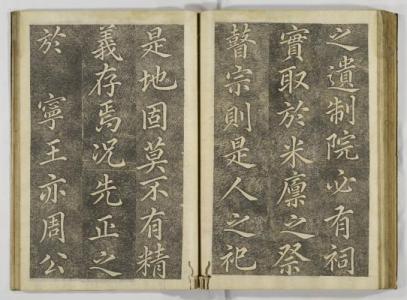 之遺制院必有祠
實取於米廩之祭
瞽宗則是人之祀
是地固莫不有精
義存焉况先正之
於 寧王亦周公